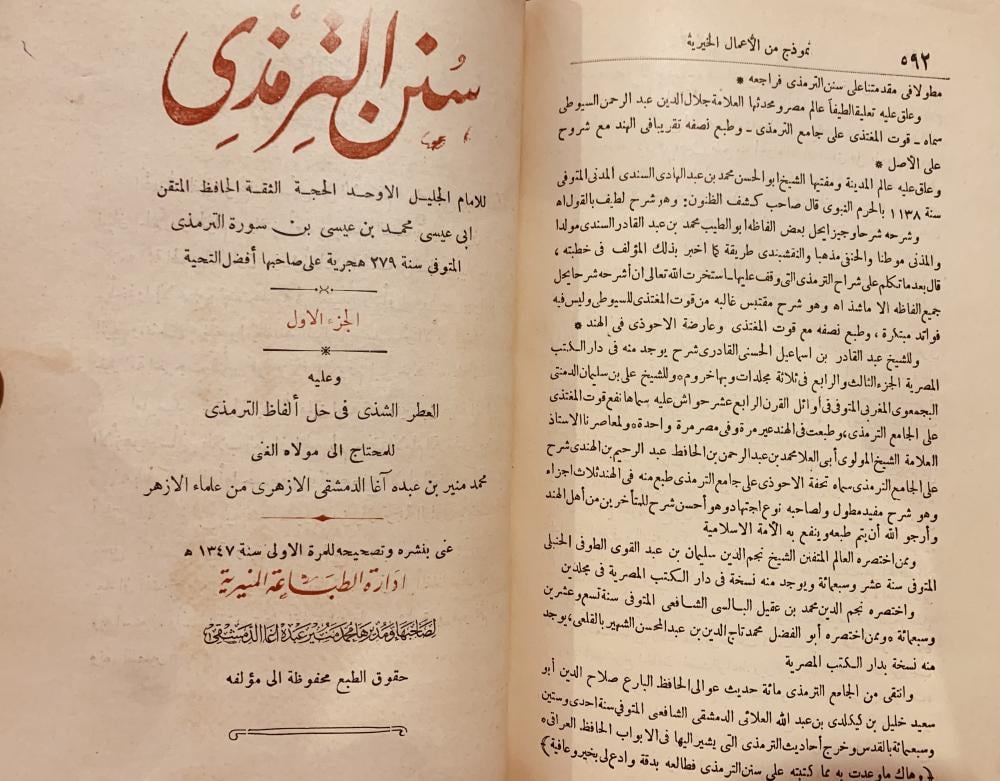 ٥٩٢
نموذج من الأعمال الخيرية
مطولا فى مقدمتنا على سنن الترمذى فراجعه *
وعلق عليه تعليقا لطيفاً عالم مصر ومحدثها العلامة جلال الدين عبد الرحمن السيوطى
سماه ــ قوت المغتذى على جامع الترمذى ــ وطبع نصفه تقريبا فى الهند مع شروح
على الأصل *
وعلق عليه عالم المدينة ومفتيها الشيخ ابو الحسن محمد بن عبد الهادى السندى المدنى المتوفى
سنة ١١٣٨ بالحرم النبوى قال صاحب كشف الظنون: وهو شرح لطيف بالقول اه
وشرحه شرحا وجيزا يحل بعض الفاظه ابو الطيب محمد بن عبد القادر السندى مولدا
والمدنى موطنا والحنفى مذهبا والنقشبندى طريقة كما اخبر بذلك المؤلف فى خطبته ،
قال بعد ما تكلم على شراح الترمذى التى وقف عليها ــ استخرت الله تعالى ان أشرحه شرحا يحل
جميع الفاظه الا ما شذ اه وهو شرح مقتبس غالبه من قوت المغتذى للسيوطى وليس فيه
فوائد مبتكرة ، وطبع نصفه مع قوت المغتذى وعارضة الاحوذى فى الهند *
وللشيخ عبد القادر بن اسماعيل الحسنى القادرى شرح يوجد منه فى دار الكتب
المصرية الجزء الثالث والرابع فى ثلاثة مجلدات وبها خروم ه وللشيخ على بن سليمان الدمنتى
البجمعوى المغربى المتوفى فى أوائل القرن الرابع عشر حواش عليه سماها نفع قوت المغتذى
على الجامع الترمذى، وطبعت فى الهند غير مرة وفى مصر مرة واحدة ه ولمعاصرنا الاستاذ
العلامة الشيخ المولوى أبى العلا محمد بن عبد الرحمن بن الحافظ عبد الرحيم بن الهندى شرح
على الجامع الترمذى سماه تحفة الاحوذى على جامع الترمذى طبع منه فى الهند ثلاث اجزاء
وهو شرح مفيد مطول ولصاحبه نوع اجتهاد وهو أحسن شرح للمتأخرين من أهل الهند
وأرجو الله أن يتم طبعه وينفع به الأمة الاسلامية
وممن اختصره العالم المتفنن الشيخ نجم الدين سليمان بن عبد القوى الطوفى الحنبلى
المتوفى سنة عشر وسبعمائة ويوجد منه نسخة فى دار الكتب المصرية فى مجلدين
واختصره نجم الدين محمد بن عقيل البالسى الشافعى المتوفى سنة تسع وعشرين
وسبعمائة ه وممن اختصره أبو الفضل محمد تاج الدين بن عبد المحسن الشهير بالقلعى، يوجد
منه نسخة بدار الكتب المصرية
وانتقى من الجامع الترمذى مائة حديث عوالى الحافظ البارع صلاح الدين أبو
سعيد خليل بن كيكلدى بن عبد الله العلائى الدمشقى الشافعى المتوفى سنة احدى وستين
وسبعمائة بالقدس وخرج أحاديث الترمذى التى يشير اليها فى الابواب الحافظ العراقى ه
(وهاك ما وعدت به مما كتبته على سنن الترمذى فطالعه بدقة وادع لى بخير وعافية)
سنن الترمذي
للامام الجليل الاوحد الحجة الثقة الحافظ المتقن
ابى عيسى محمد بن عيسى بن سورة الترمذى
المتوفى سنة ٢٧٩ هجرية على صاحبها أفضل التحية
الجزء الاول
وعليه
العطر الشذى فى حل ألفاظ الترمذى
للمحتاج الى مولاه الغنى
محمد منير بن عبده آغا الدمشقى الازهرى من علماء الازهر
عنى بنشره وتصحيحه للمرة الاولى سنة ١٣٤٧ ه
ادارة الطباعة المنيرية
لصاحبها ومديرها محمد منير عبده اغا الدمشقى
حقوق الطبع محفوظة الى مؤلفه